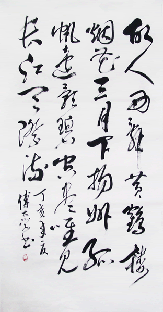 故人西辭黃鶴樓
煙花三月下揚州孤
帆遠影碧空盡唯見
長江天際流
丁亥年夏